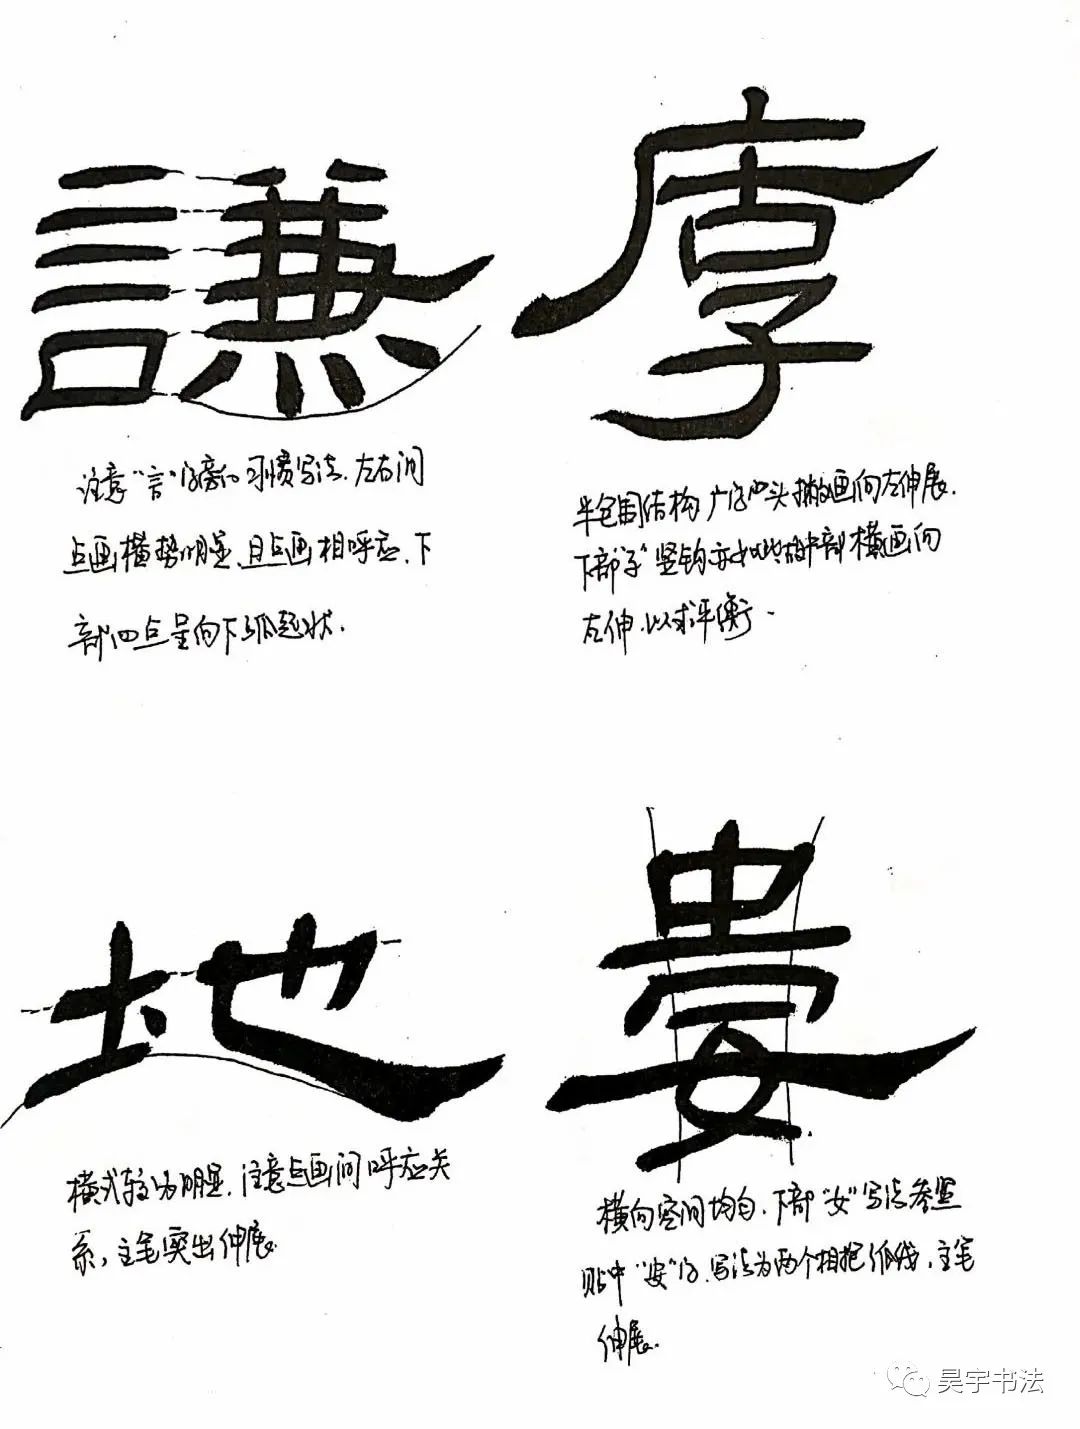 謙
注意"言"字旁的习惯写法.左右间
点画横势明显、且点画相呼应、下
部四点呈向下弧状.
厚
半包围结构广字头撇画向左伸展.
下部"子"竖钩亦如此故中部横画向
左伸.以求平衡.
地
横式较为明显.注意点画间呼应关
系,主笔突出伸展.
婁
横向空间均匀.下部"女"写法参照
贴中"安"字.写法为两个相抱弧线.主笔
伸展.
昊宇书法